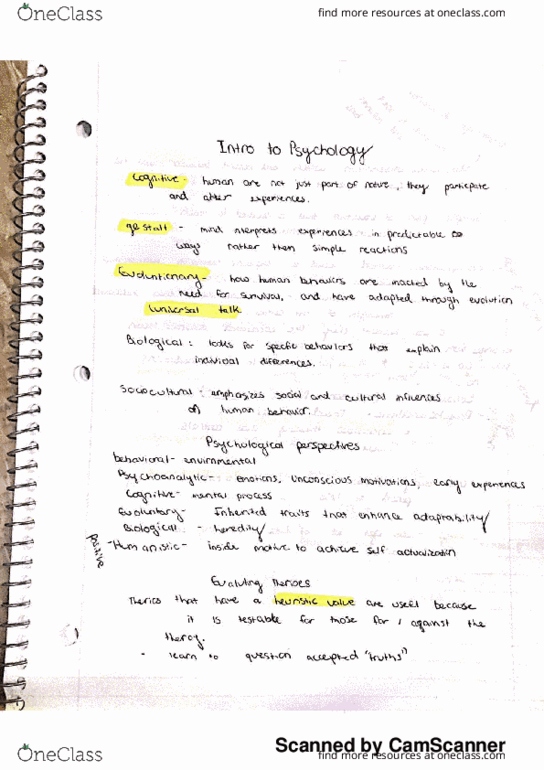 OneClass
find more resources at oneclass.com
Intro to Psychology
Cognitive - human are not just part of nature, they participate
and alter experiences.
gestalt - mind interprets experiences in predictable
ways rather than simple reactions
Evolutionary - how human behaviors are impacted by the
need for survival, and have adapted through evolution
Universal talk
Biological : looks for specific behaviors that explain
individual differences.
Sociocultural : emphasizes social and cultural influences
on human behavior.
Psychological perspectives
behavioral - envirnmental
Psychoanalytic - emotions, unconscious motivations, early experiences
Cognitive - mental process
Evolutionary - Inherited traits that enhance adaptability
Biological - heredity
positive
- Humanistic - inside motive to achieve self actualization
Evaluting Theroes
Theries that have a heuristic value are useful because
it is testable for those for / against the
theroy.
- learn to question accepted "truths"
Scanned by CamScanner
OneClass
find more resources at oneclass.com